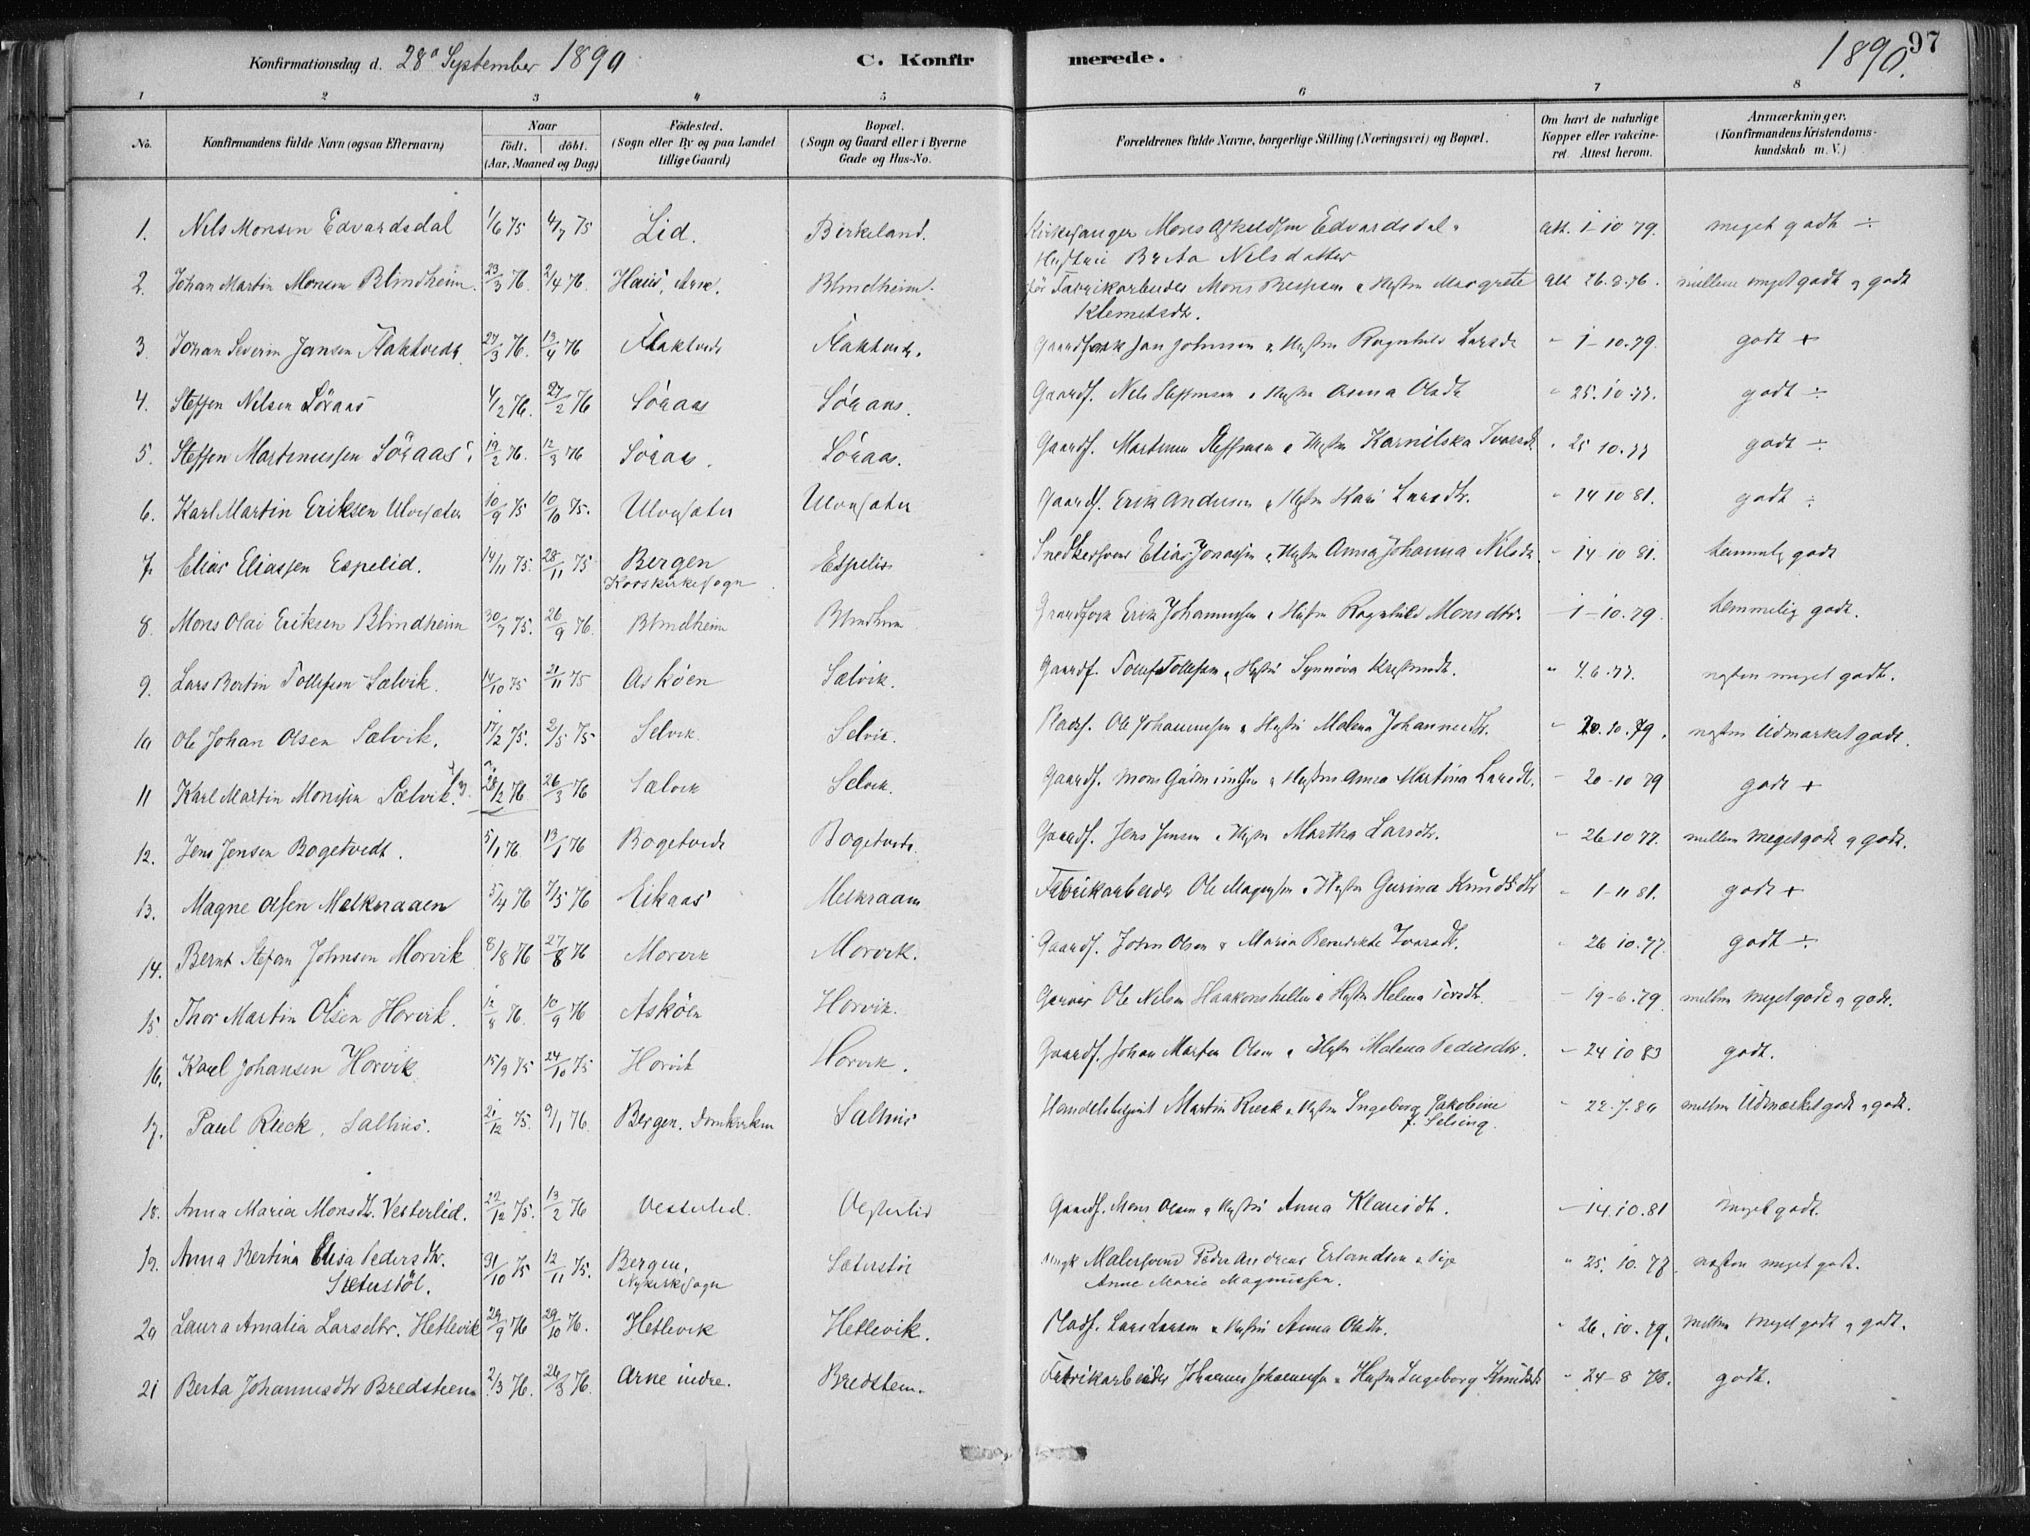 Konfirmationsdag d. 28de September 1890 C. Konfir merede. 1890. 97
1 2 3 4 5 6 7 8
No. Konfirmandens fulde Navn (ogsaa Efternavn) Naar födt. döbt. (Aar, Maaned og Dag) Födested. (Sogn eller By og paa Landet tillige Gaard) Bopæl. (Sogn og Gaard eller i Byerne Gade og Hus-No. Forældrenes fulde Navne, borgerlige Stilling (Næringsvei) og Bopæl. Om havt de naturlige Kopper eller vakcineret. Attest herom. Anmærkninger. (Konfirmandens Kristendomskundskab m. V.)
1. Nils Monsen Edvardsdal 1/6 75 4/7 75 Lid. Birkeland. Kirkesanger Mons Edvardsdal Hustru Brita Nilsdatter att. 1-10 79. meget godt ÷
2. Johan Martin Monsen Blindheim. 23/3 76. 2/4 76 Haus, Arne. Blindheim. Fabrikarbeider Mons Hustru Margrete Klemetsdtr. att 26.8.76. mellem meget godt og godt
3. Johan Severin Jansen Flaktvedt 27/3 76. 13/4 76 Flaktvedt Flaktvedt. Jan Johnsen Hustru Ragnhild Larsdtr " 1-10.79. godt +
4. Steffen Nilsen Söraas 4/2 76. 27/2 76 Söraas Söraas. Gaardf. Nels Steffensen Hustru Anna Olsdtr " 25.10.77. godt ÷
5. Steffen Martinussen Söraas. 19/2 76. 12/3 76 Söraas. Söraas. Gaardf. Martinus Steffensen Hustru Karnilska Ivarsdtr " 25 10.77 godt ÷
6. Karl Martin Eriksen Ulvesæter 10/9 75 10/10 75. Ulvesæter Ulvesæter Gaardf. Erik Andersen Hustru Kari Larsdtr. " 14 10 81. godt ÷
7. Elias Eliassen Espelid. 14/11 75. 28/11 75 Bergen Korskirkesogn Espelid Snedkersvend Elias Hustru Anna Johanna Nilsdtr - 14 10 81. temmelig godt
8. Mons Olai Eriksen Blindheim 30/7 75. 26/9 76. Blindheim Blindheim Erik Johannessen Hustru Ragnhild Monsdtr. - 1-10.79. temmelig godt.
9. Lars Bertin Tollefsen Salvik. 14/10 75 21/11 75 Asköen Salvik. Gaardf. Tollef Tollefsen Hustru Synnöva " 4.6.77. næsten meget godt.
10 Ole Johan Olsen Salvik. 17/2 75. 2/5 75 Selvik. Selvik. Pladsf. Ole Johannessen Hustru Malena Johannesdtr. - 20.10.79. næsten Udmærket godt.
11 Karl Martin Monssen Salvik. 28/2 76 26/3 76 Salvik Selvik. Gaardf. Mons Hustru Anna Martina Larsdtr. - 20-10 79 godt +
12. Jens Jensen Bogetvedt. 5/1 76 13/1 76 Bogetvedt Bogetvedt. Gaardf. Jens Jensen Hustru Martha Larsdtr. - 26 10 77. mellem meget godt og godt.
13. Magne Olsen Melkeraaen 5/4 76 7/5 76 Eikaas Melkraaen Fabrikarbeider Ole Magnesen Hustru Gurina Knudsdtr - 1-11 81. godt +
14. Bernt Stefan Johnsen Morvik 8/8 76 27/8 76 Morvik Morvik. Gaardf. John Olsen Maria Benedikte Ivarsdtr. " 26 10.77 godt ÷
15 Thor Martin Olsen Horvik. 12/8 76. 10/9 76 Asköen Horvik. Garver Ole Nilsen Haakonshellen Hustru Helena - 19-6.79. mellem meget godt og godt.
16. Karl Johansen Horvik 15/9 75 24/10 75 Horvik Horvik. Gaardf. Johan Martin Olsen Hustru Malena Pedersdtr. - 24 10 83 godt.
17. Paul Rieck, Salhus. 21/12 75. 9/1 76. Bergen. Domkirken Salhus Martin Rieck Hustru Ingeborg Jakobine f. Selsing. - 22.7.80 mellem Udmærket godt og godt.
18. Anna Maria Monsdtr. Vesterlid. 22/12 75. 13/2 76 Vesterlid. Vesterlid Gaardf. Mons Olsen Hustru Anna Klausdtr. - 14.10.81 meget godt.
19. Anna Bertina Elisa Pedersdtr. Sæterstöl. 31/10 75 12/11 75. Bergen, Nykirkesogn Sæterstöl Malersvend Peder Andreas Erlandsen Pige Anne Marie Magnussen. " 25.10.77. næsten meget godt.
20 Laura Amalia Larsdtr. Hetlevik 29/9 76 29/10 76. Hetlevik Hetlevik. Pladsf. Lars Larsen Hustru Anna Olsdtr. " 26.10.79. mellem meget godt og godt.
21 Berta Johannesdtr Bredsteen. 2/3 76. 26/3 76. Arne indre. Bredsteen. Fabrikarbeider Johannes Johannessen Hustru Ingeborg Knudsdtr " 24-8 78. godt.